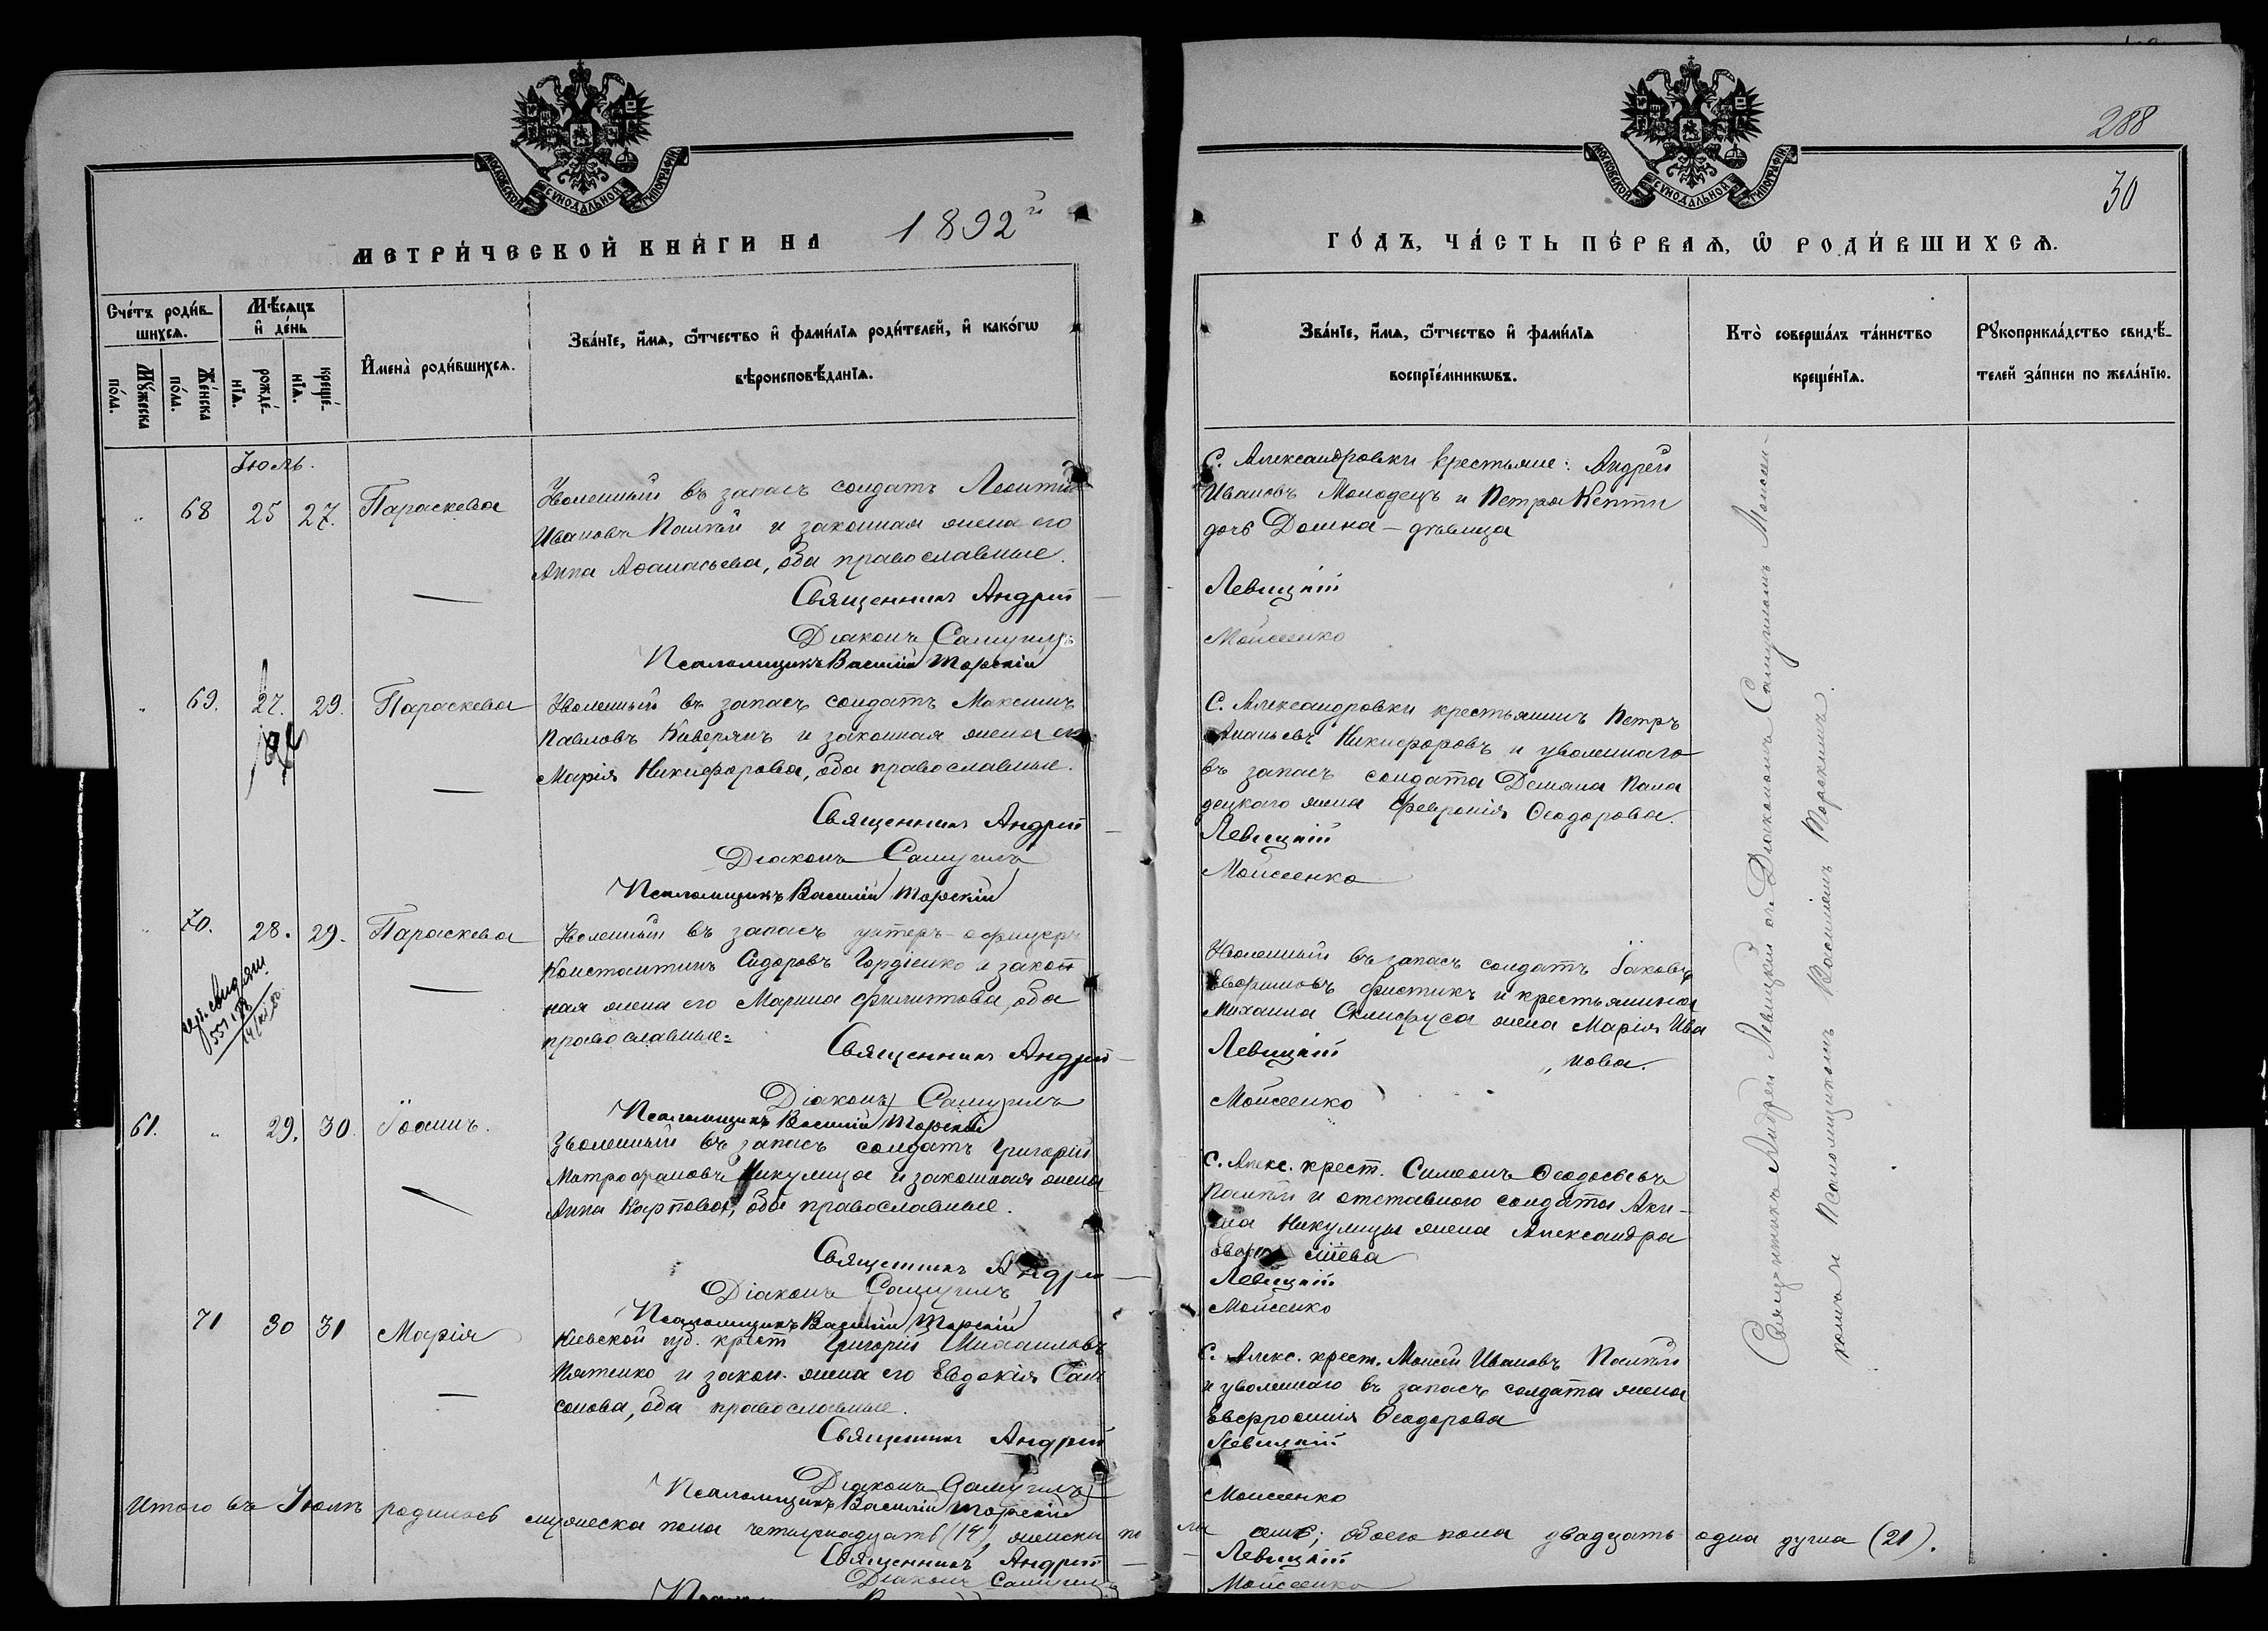 288
30
МОСКОВСКОЙ СѴНОДАЛЬНОЙ ТИПОГРАФІИ
МОСКОВСКОЙ СѴНОДАЛЬНОЙ ТИПОГРАФІИ
МЕТРИ́ЧЕСКОЙ КНИ́ГИ НА 1892й
ГО́ДЪ, ЧА́СТЬ ПЕ́РВАѦ, Ѡ҆ РОДИ́ВШИХСѦ.
Сче́тъ роди́в-
шихсѧ.
Мꙋ́жеска по́ла.
Же́нска по́ла.
Мѣ́сѧцъ
и҆ де́нь
рожде́-
нїѧ.
креще́-
нїѧ.
И҆мена̀ роди́вшихсѧ.
Зва́нїе, и҆́мѧ, ѻ҆́тчество и҆ фами́лїѧ роди́телей, и҆ како́гѡ
вѣроисповѣ́данїѧ.
Зва́нїе, и҆́мѧ, ѻ҆́тчество и҆ фами́лїѧ
воспрїе́мникѡвъ.
Кто̀ соверша́лъ та́инство
креще́нїѧ.
Рꙋкоприкла́дство свидѣ́-
телей за́писи по жела́нїю.
Іюль.
" 68 25 27. Параскева
Уволенный въ запасъ солдатъ Леонтій
Ивановъ Палѣй и законная жена его
Анна Аѳанасьева, оба православные.
Священникъ Андрей
Діаконъ Самуилъ
Псаломщикъ Василій Торскій
С. Александровки крестьяне: Андрей
Ивановъ Молодецъ и Петра Кепти
дочь Домна – дѣвица
Левицкій
Моисеенко
" 69. 27. 29. Параскева
Уволенный въ запасъ солдатъ Максимъ
Павловъ Киверянъ и законная жена его
Марія Никифорова, оба православные.
Священникъ Андрей
Діаконъ Самуилъ
Псаломщикъ Василій Торскій
С. Александровки крестьянинъ Петръ
Ананьевъ Никифоровъ и уволеннаго
въ запасъ солдата Демяна Пала
децкаго жена Февронія Ѳеодорова.
Левицкій
Моисеенко
" 70. 28. 29. Параскева
Уволенный въ запасъ унтеръ-офицеръ
Константинъ Сидоровъ Гордіенко и закон
ная жена его Марина Филиппова, оба
православные.
Священникъ Андрей
Діаконъ Самуилъ
Псаломщикъ Василій Торскій
Уволенный въ запасъ солдатъ Іаковъ
Фистикъ и крестьянина
Михаила Склифуса жена Марія Ива
нова.
Левицкій
Моисеенко
61. " 29. 30. Іоаннъ.
Уволенный въ запасъ солдатъ Григорій
Митрофановъ Никулица и законная жена
Анна Карпова, оба православные.
Священникъ Андрей
Діаконъ Самуилъ
Псаломщикъ Василій Торскій
С. Алекс. крест. Симеонъ Ѳеодосьевъ
Палѣй и отставного солдата Аки-
ма Никулицы жена Александра
Левицкій
Моисеенко
71 30 31 Марія
Кіевской губ. крест. Григорій Михаиловъ
Пятенко и закон. жена его Евдокія Сам
сонова, оба православные.
Священникъ Андрей
Діаконъ Самуилъ
Псаломщикъ Василій Торскій
С. Алекс. крест. Моисей Ивановъ Палѣй
и уволеннаго въ запасъ солдата жена
Евфросинія Ѳеодорова
Левицкій
Моисеенко
Священникъ Андрей Левицкій съ Діакономъ Самуиломъ Моисеен-
комъ и Псаломщикомъ Василіемъ Торскимъ.
Итого въ Іюлѣ родилось мужеска пола четырнадцать (14), женска по ла семь; обоего пола двадцать одна душа (21).
Священникъ Андрей Левицкій
Діаконъ Самуилъ Моисеенко